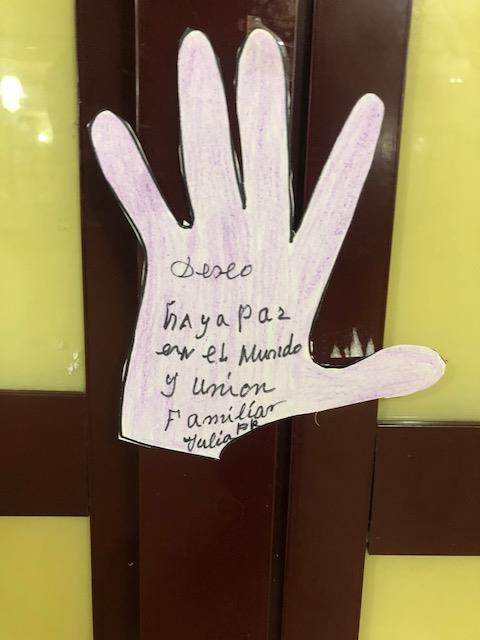 Deseo
haya paz
en el Mundo
y union
Familiar
Yulia PR